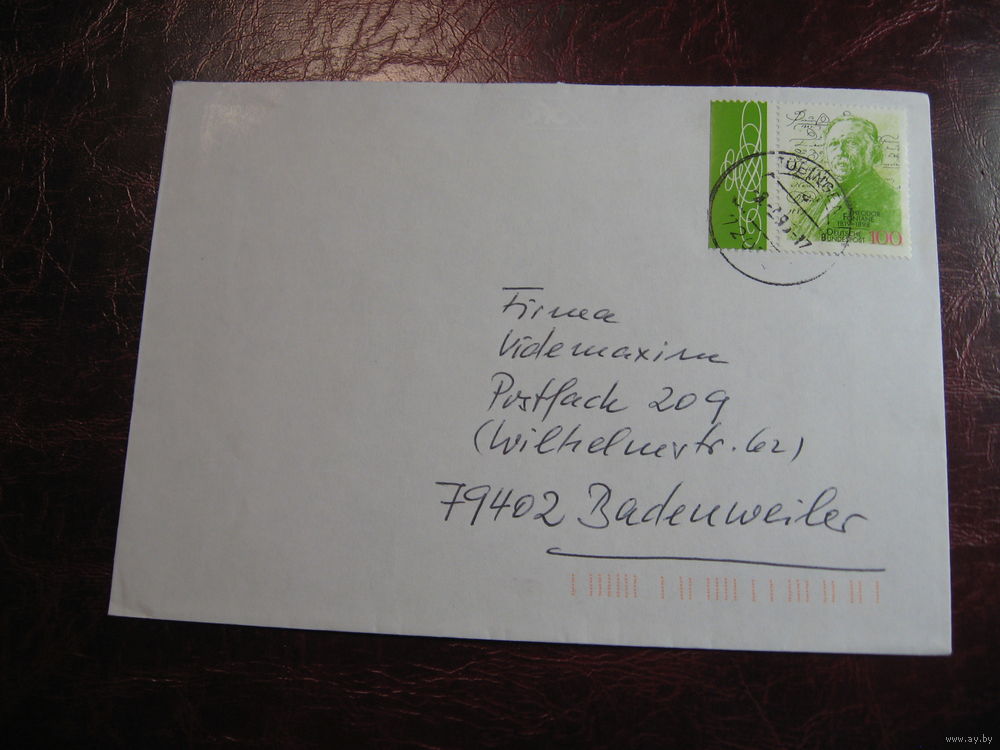 THEODOR
FONTANE
1819-1898
DEUTSCHE
BUNDESPOST
100
Firma
Videmaxima
Postfach 209
(Wilhelmstr. 62)
79402 Badenweiler
www.ay.by